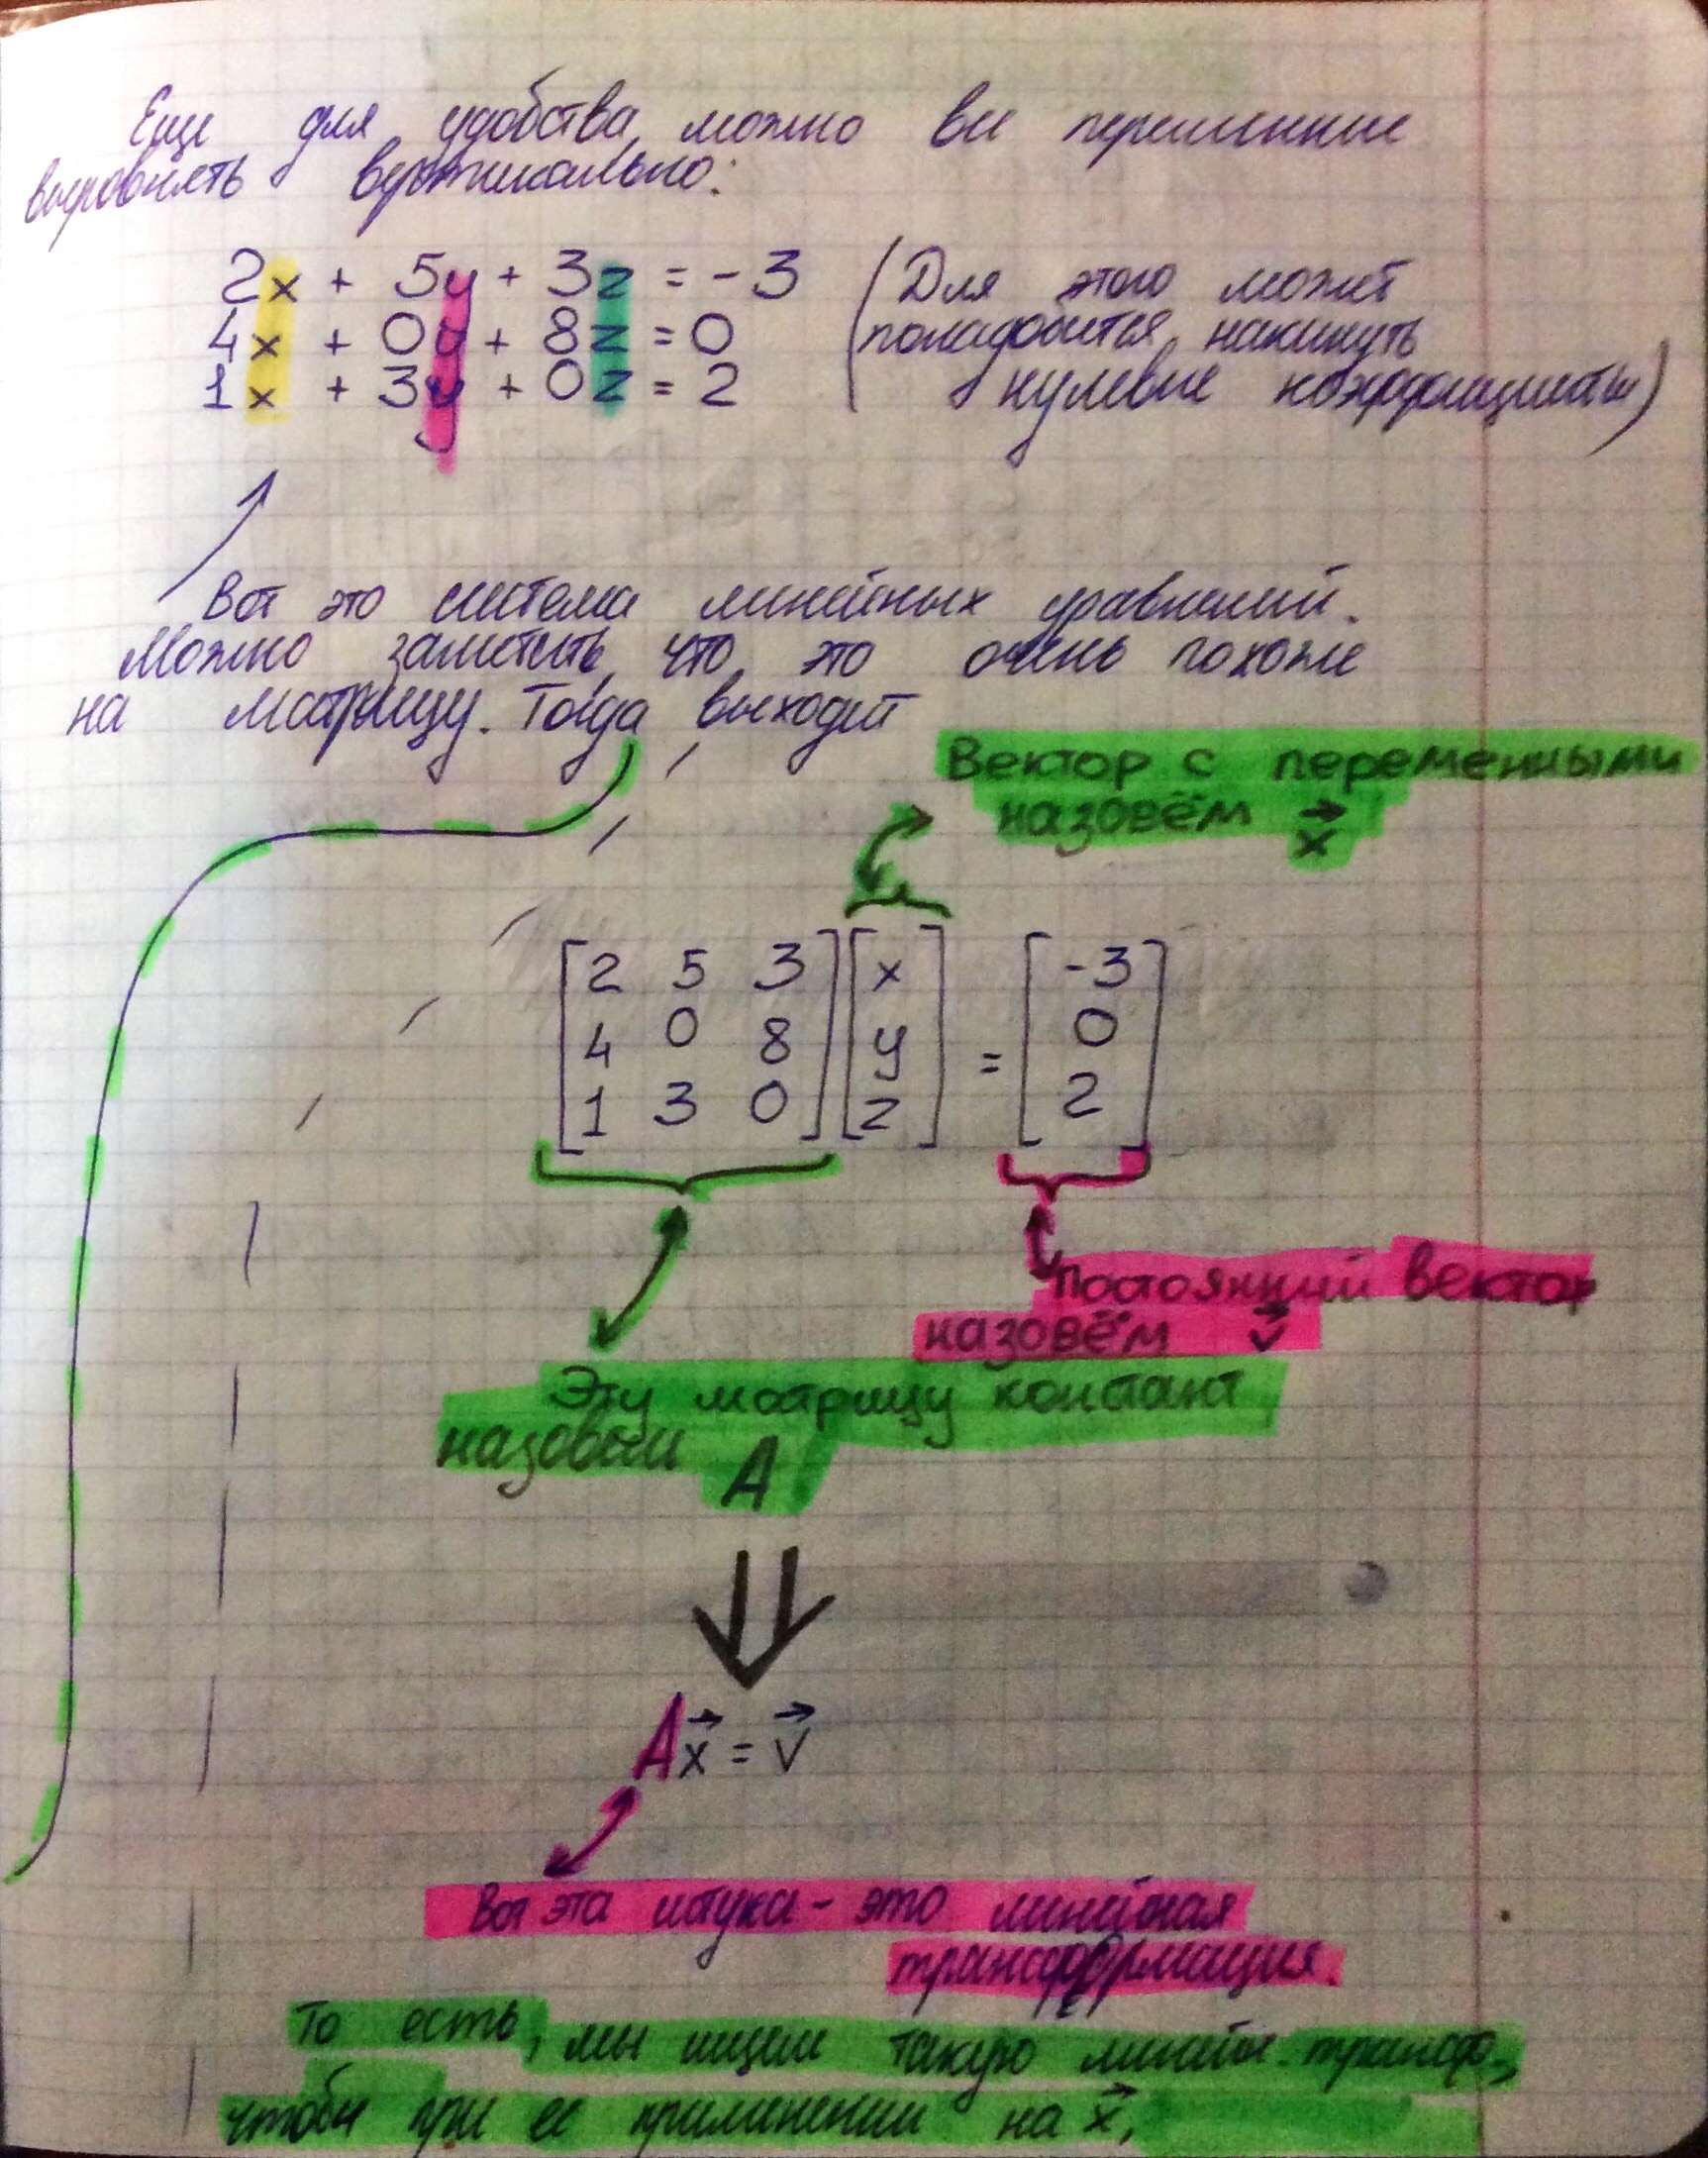 Еще для удобства можно все переменные
выровнять вертикально:
2x + 5y + 3z = -3
4x + 0y + 8z = 0
1x + 3y + 0z = 2
(Для этого может
понадобится накинуть
нулевые коэффициенты)
Вот это система линейных уравнений.
Можно заметить, что это очень похоже
на матрицу. Тогда выходит
Вектор с переменными
назовём x⃗
[2 5 3] [x] [-3]
[4 0 8] [y] = [0]
[1 3 0] [z] [2]
Постоянний вектор
назовём v⃗
Эту матрицу констант,
назовём A
⇓
Ax⃗ = v⃗
Вот эта штука - это линейная
трансформация.
То есть, мы ищем такую линейн. трансф.,
чтобы при ее применении на x⃗,